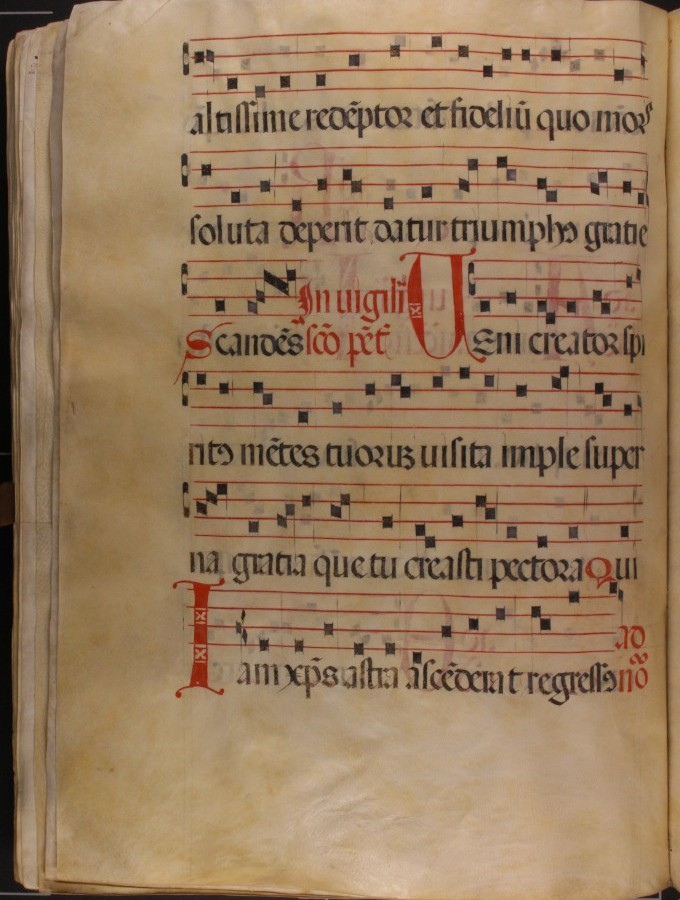 altissime redēptor et fideliū quo mors
soluta deperit datur triumphꝰ gratie
In uigili
Scandēs scō pēt Ueni creator spi
ritꝰ mētes tuoruꝫ uisita imple super
na gratia que tu creasti pectora Qui
ad
Iam xp̄s astra ascēderat regressꝰ nō